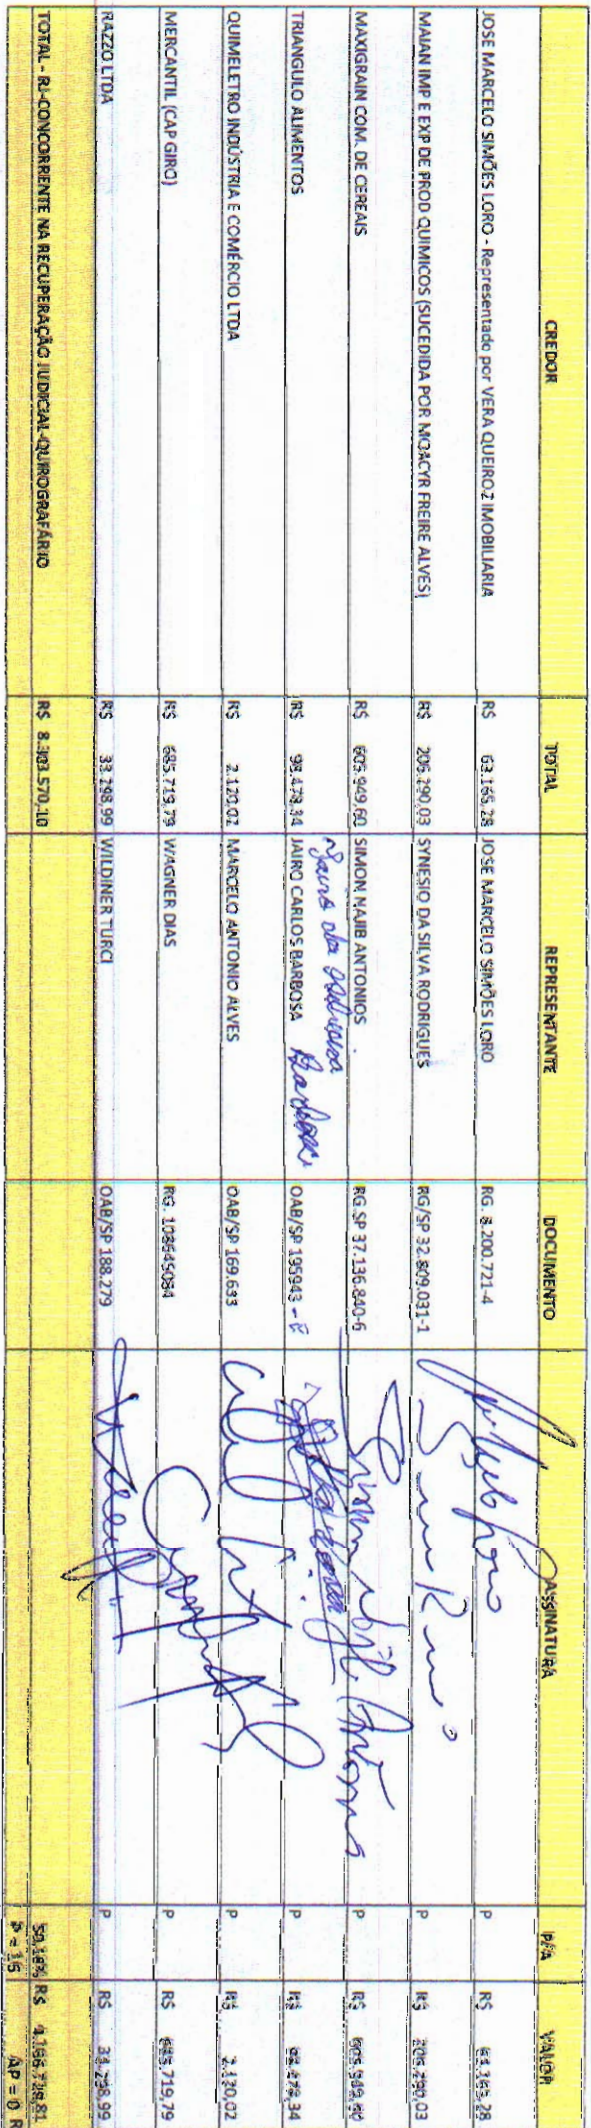 CREDOR TOTAL REPRESENTANTE DOCUMENTO ASSINATURA P/A VALOR
JOSE MARCELO SIMÕES LORO - Representado por VERA QUEIROZ IMOBILIARIA R$ 63.165,28 JOSE MARCELO SIMÕES LORO RG. 8.200.721-4 P R$ 63.165,28
MAIAN IMP E EXP DE PROD QUIMICOS (SUCEDIDA POR MOACYR FREIRE ALVES) R$ 206.290,03 SYNESIO DA SILVA RODRIGUES RG/SP 32.809.031-1 P R$ 206.290,03
MAXIGRAIN COM. DE CEREAIS R$ 605.949,60 SIMON NAJIB ANTONIOS RG.SP 37.136.840-6 P R$ 605.949,60
TRIANGULO ALIMENTOS R$ JAIRO CARLOS BARBOSA Barbosa OAB/SP 195943 P R$
QUIMELETRO INDÚSTRIA E COMÉRCIO LTDA R$ MARCELO ANTONIO ALVES OAB/SP 169.633 P R$
MERCANTIL (CAP GIRO) R$ 685.719,79 WAGNER DIAS RG. 108645084 P R$ 685.719,79
RAZZO LTDA R$ 33.298,99 WILDINER TURCI OAB/SP 188.279 P R$ 33.298,99
TOTAL - RJ-CONCORRENTE NA RECUPERAÇÃO JUDICIAL-QUIROGRAFÁRIO R$ 8.303.570,10 50,18% R$
P = 15 AP = 0 R